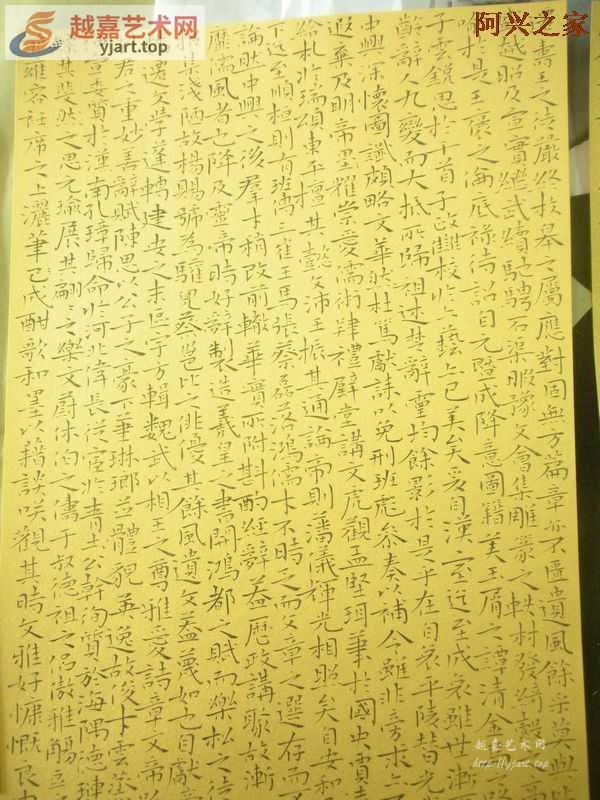 越嘉艺术网
yjart.top
阿兴之家
壽王之徒嚴終枚皋之屬應對固無方篇章亦不匱遺風餘采莫與比
越昭及宣實繼武績馳騁石渠暇豫文會集雕篆之軼材發綺縠之高
於是王褒之倫底祿待詔自元暨成降意圖籍美玉屑之譚清金馬
子雲銳思於千首子政讎校於六藝亦已美矣爰自漢室迄至成哀雖世漸
齡辭人九變而大抵所歸祖述楚辭靈均餘影於是乎在自哀平陵替光
中興深懷圖讖頗略文華然杜篤獻誄以免刑班彪參奏以補令雖非旁求亦不
遐棄及明帝疊耀崇愛儒術肄禮璧堂講文虎觀孟堅珥筆於國史賈
給札於瑞頌東平擅其懿文沛王振其通論帝則藩儀輝光相照矣自安和
下迄至順桓則有班傅三崔王馬張蔡磊落鴻儒才不時乏而文章之選存而不
論然中興之後羣才稍改前轍華實所附斟酌經辭蓋歷政講聚故漸
靡儒風者也降及靈帝時好辭製造羲皇之書開鴻都之賦而樂松之徒
集淺陋故楊賜號為驩兜蔡邕比之俳優其餘風遺文蓋蔑如也自獻帝
遷文學蓬轉建安之末區宇方輯魏武以相王之尊雅愛詩章文帝以
君之重妙善辭賦陳思以公子之豪下筆琳瑯並體貌英逸故俊才雲蒸
宣委質於漢南孔璋歸命於河北偉長從宦於青土公幹徇質於海隅德璉
其斐然之思元瑜展其翩々之樂文蔚休伯之儔于叔德祖之侶傲雅觴豆
雍容衽席之上灑筆已成酣歌和墨以藉談咲觀其時文雅好慷慨良由
越嘉艺术网
http://yjart.top